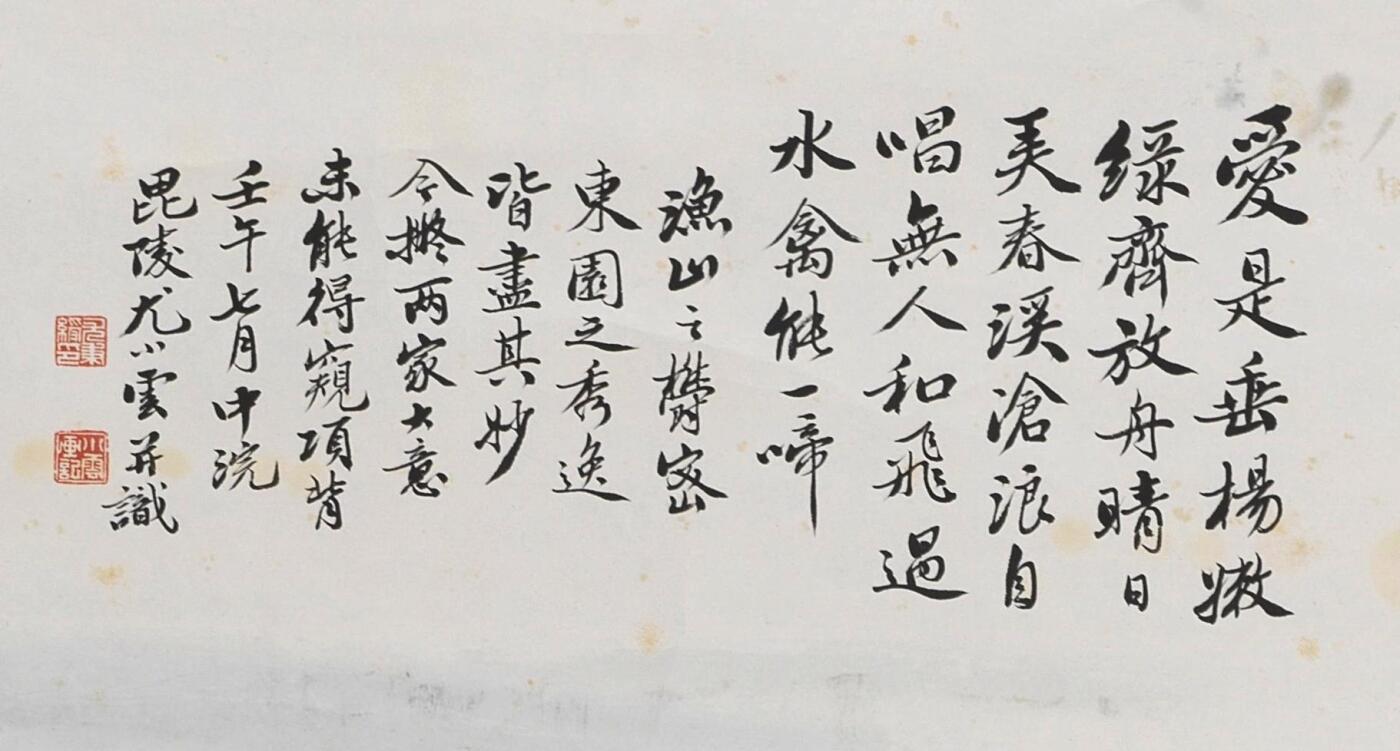 愛是垂楊嫩
綠齊放舟晴日
美春溪滄浪自
唱無人和飛過
水禽能一啼
漁山之欝密
東園之秀逸
皆盡其妙
今擬两家大意
未能得窺項背
壬午七月中浣
毘陵尤小雲并識